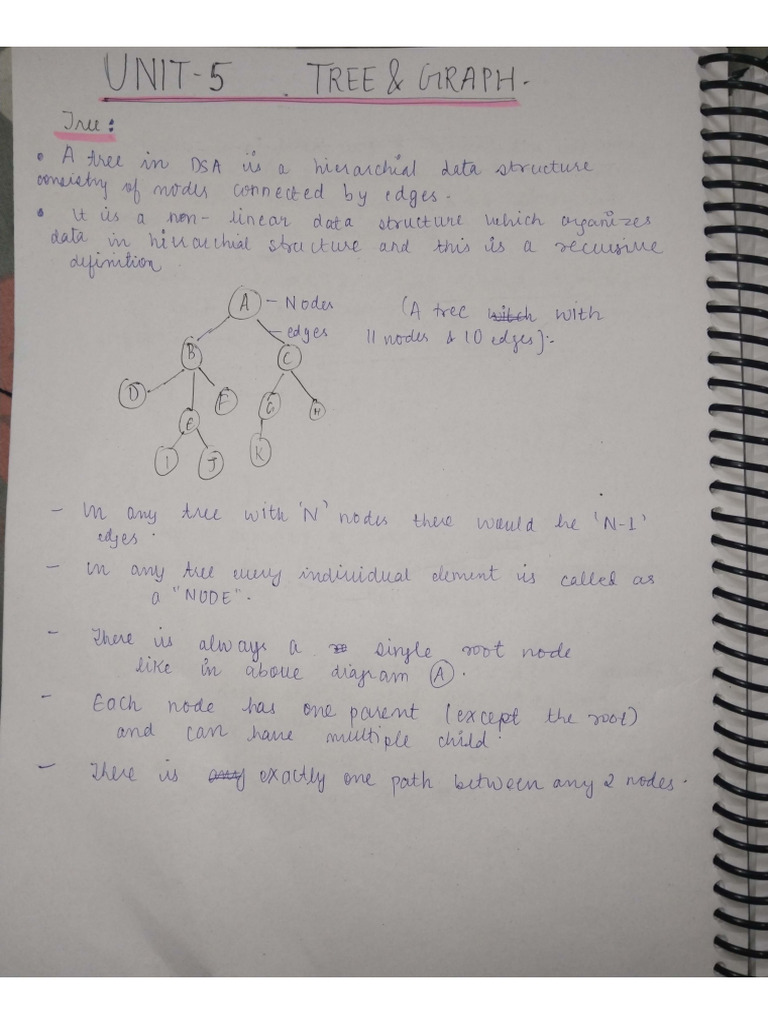 UNIT-5 . TREE & GRAPH.
Tree:
• A tree in DSA is a hierarchial data structure
consisting of nodes connected by edges.
• It is a non-linear data structure which organizes
data in hierarchial structure and this is a recursive
definition
A - Nodes (A tree with
- edges 11 nodes & 10 edges):-
B C
D F G H
E
I J K
- In any tree with 'N' nodes there would be 'N-1'
edges.
- In any tree every individual element is called as
a "NODE".
- There is always a single root node
like in above diagram (A).
- Each node has one parent (except the root)
and can have multiple child.
- There is exactly one path between any 2 nodes.